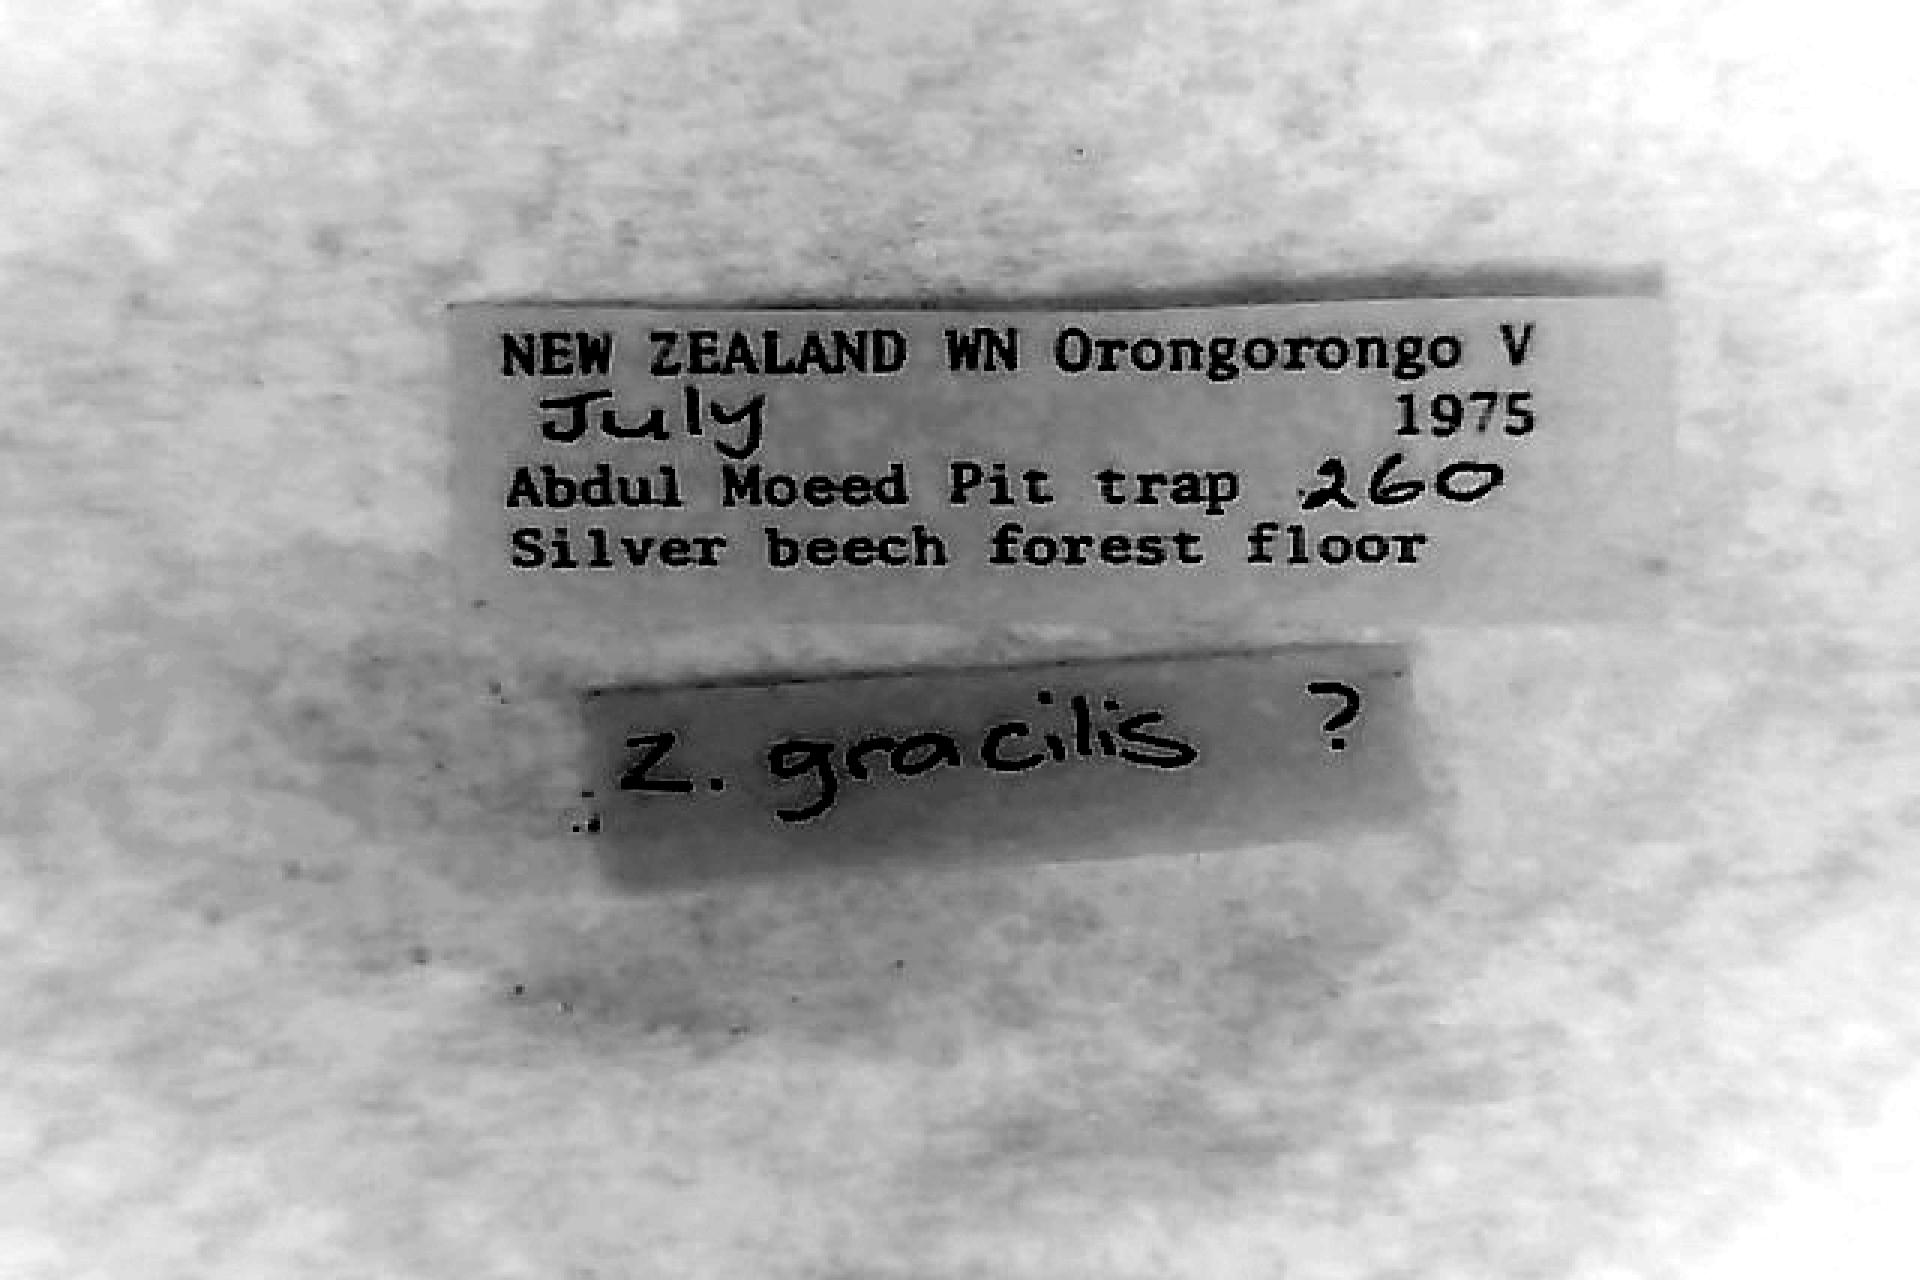 NEW ZEALAND WN Orongorongo V
July 1975
Abdul Moeed Pit trap 260
Silver beech forest floor
Z. gracilis ?